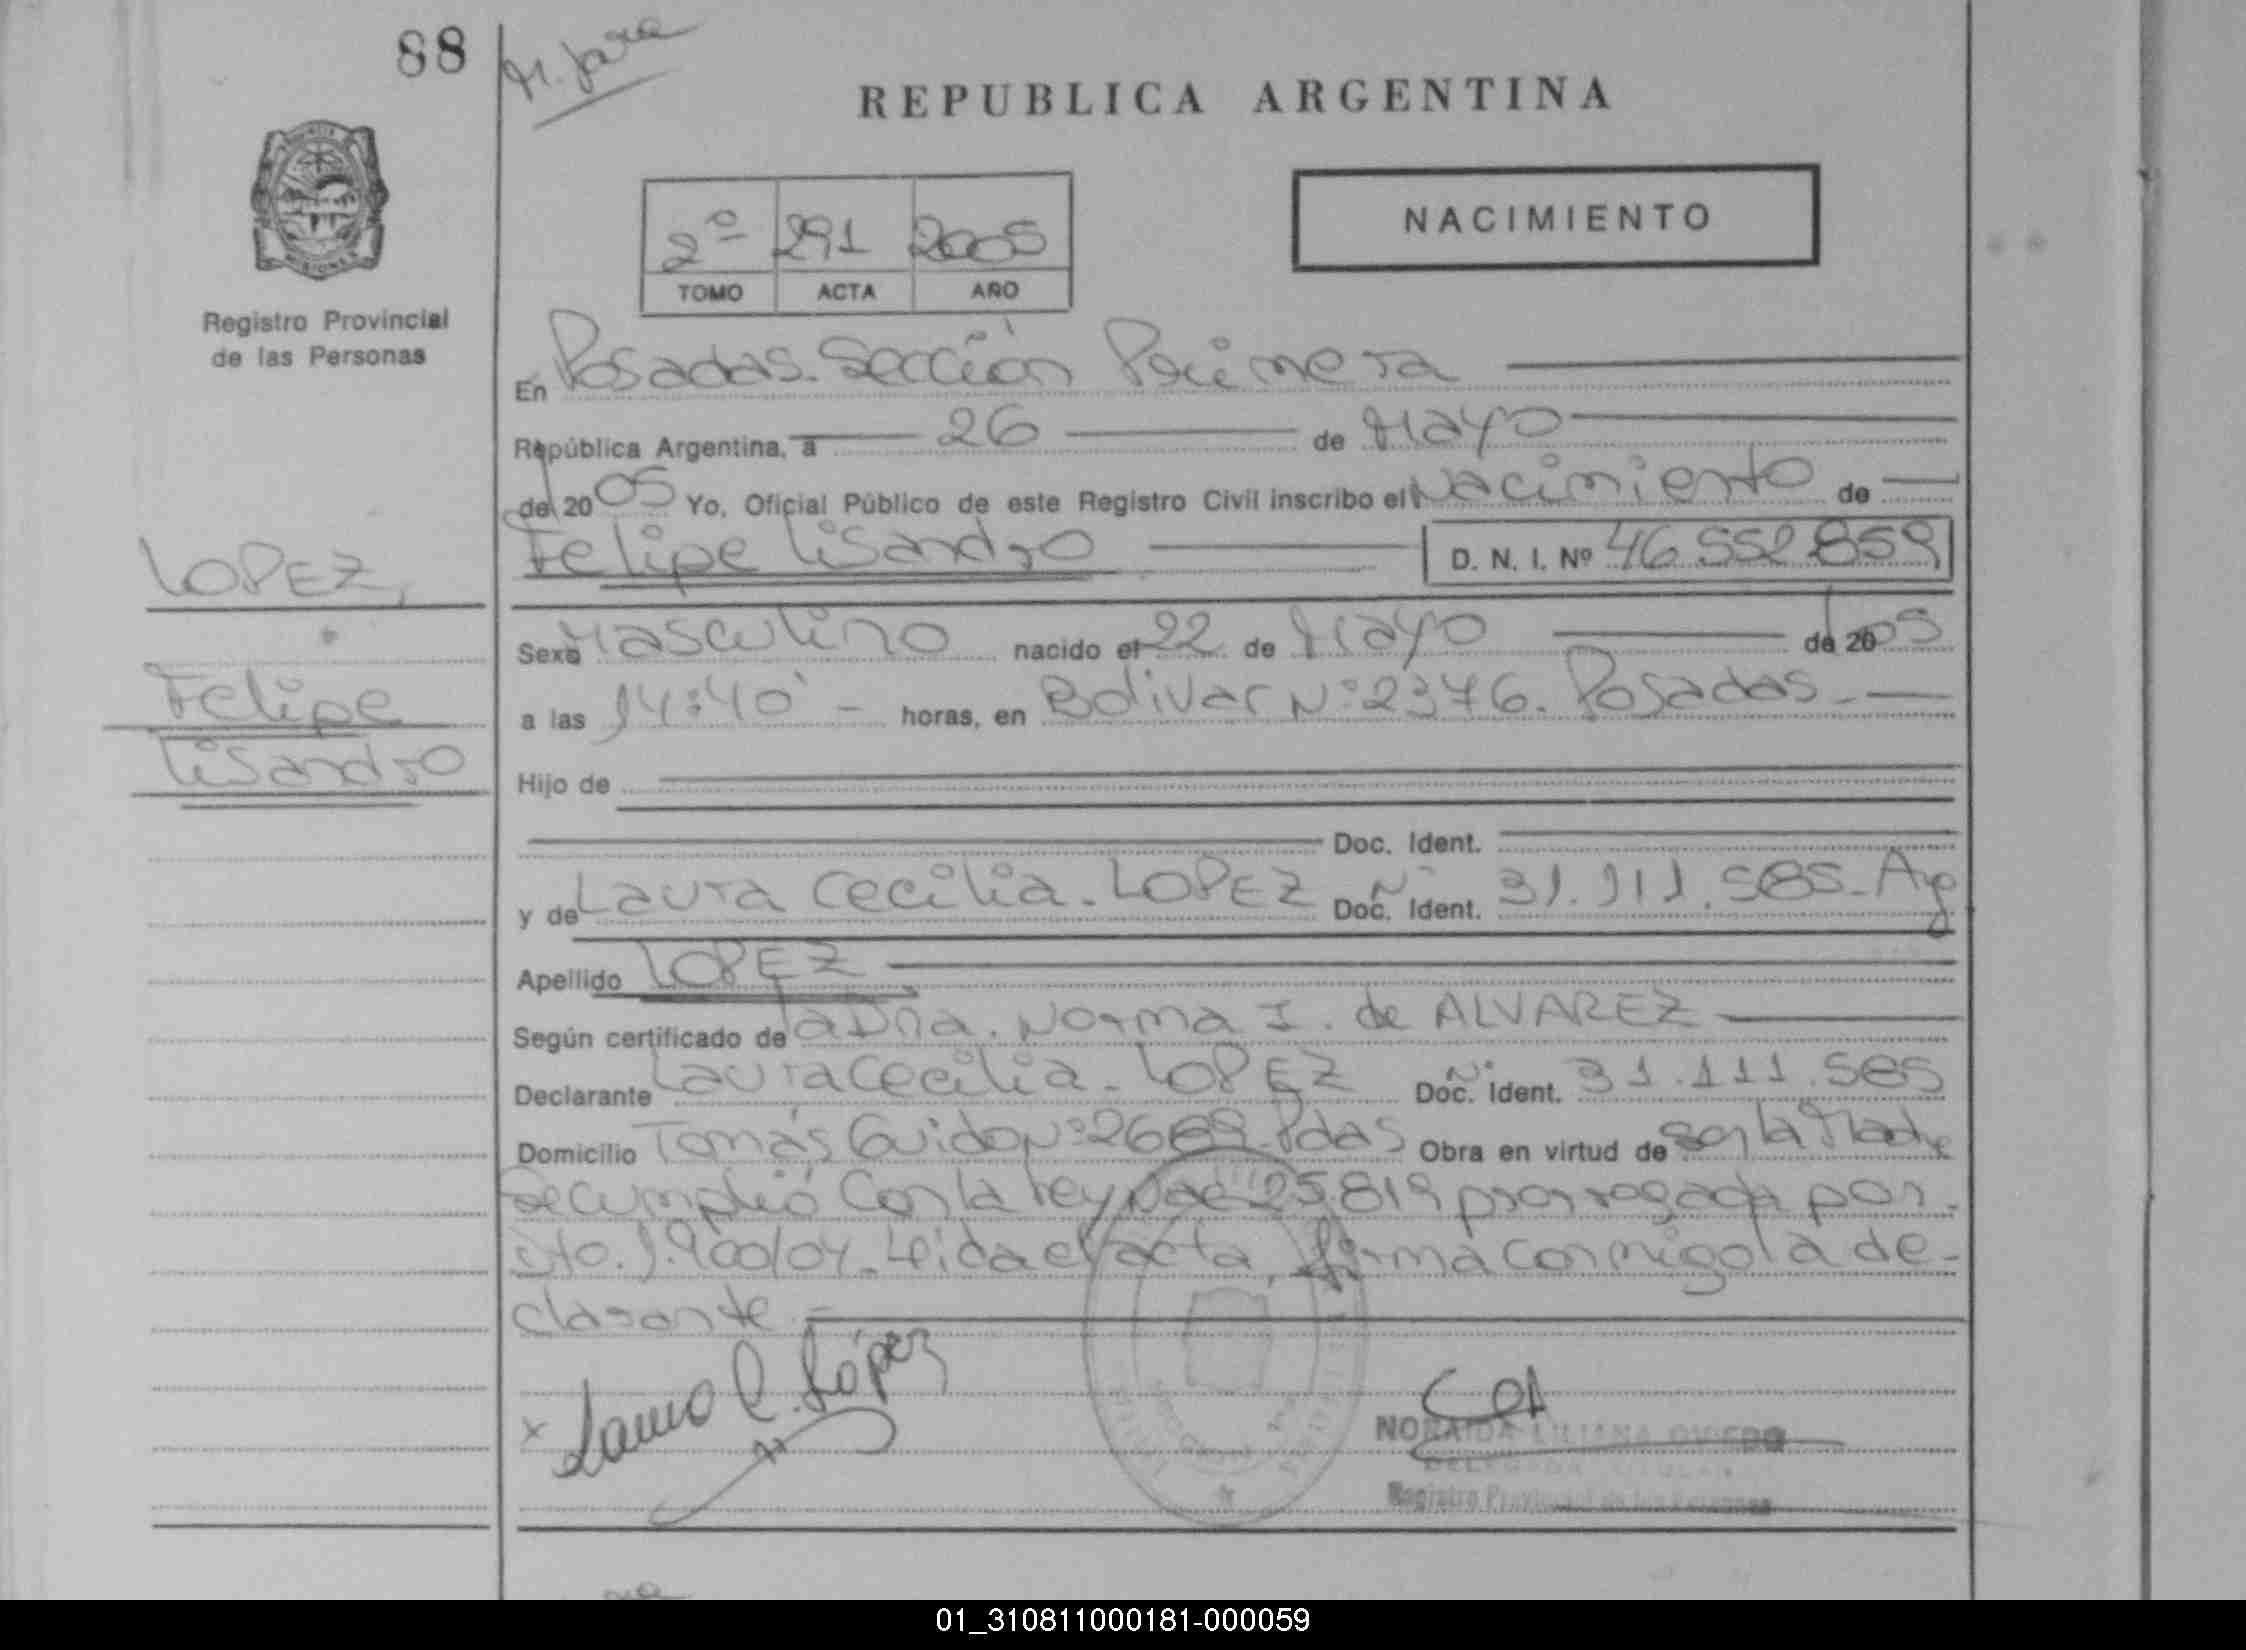 88
REPUBLICA ARGENTINA
NACIMIENTO
2º 291 2005
TOMO ACTA AÑO
MISIONES
Registro Provincial
de las Personas
En Posadas. Sección Primera
República Argentina, a 26 de Mayo
del 2005 Yo, Oficial Público de este Registro Civil inscribo el Nacimiento de
Felipe Lisandro D. N. I. Nº 46.552.859
LOPEZ,
Felipe
Lisandro
Sexo Masculino nacido el 22 de Mayo de 2005
a las 14:40' - horas, en Bolivar Nº 2376. Posadas.-
Hijo de
Doc. Ident.
y de Laura Cecilia. LOPEZ Doc. Ident. Nº 31.111.585- Arg
Apellido LOPEZ
Según certificado de la Dña. Norma I. de ALVAREZ
Declarante Laura Cecilia. LOPEZ Doc. Ident. Nº 31.111.585
Domicilio Tomás Guido Nº 2689. Pdas Obra en virtud de ser la Madre
Se cumplió con la Ley Nac 25.819 prorrogada por
Dto. 1.900/04. Leida el acta, firma conmigo la de-
clarante.-
x Laura C. López
NORAIDA LILIANA OVIEDO
DELEGADA TITULAR
Registro Provincial de las Personas
01_310811000181-000059